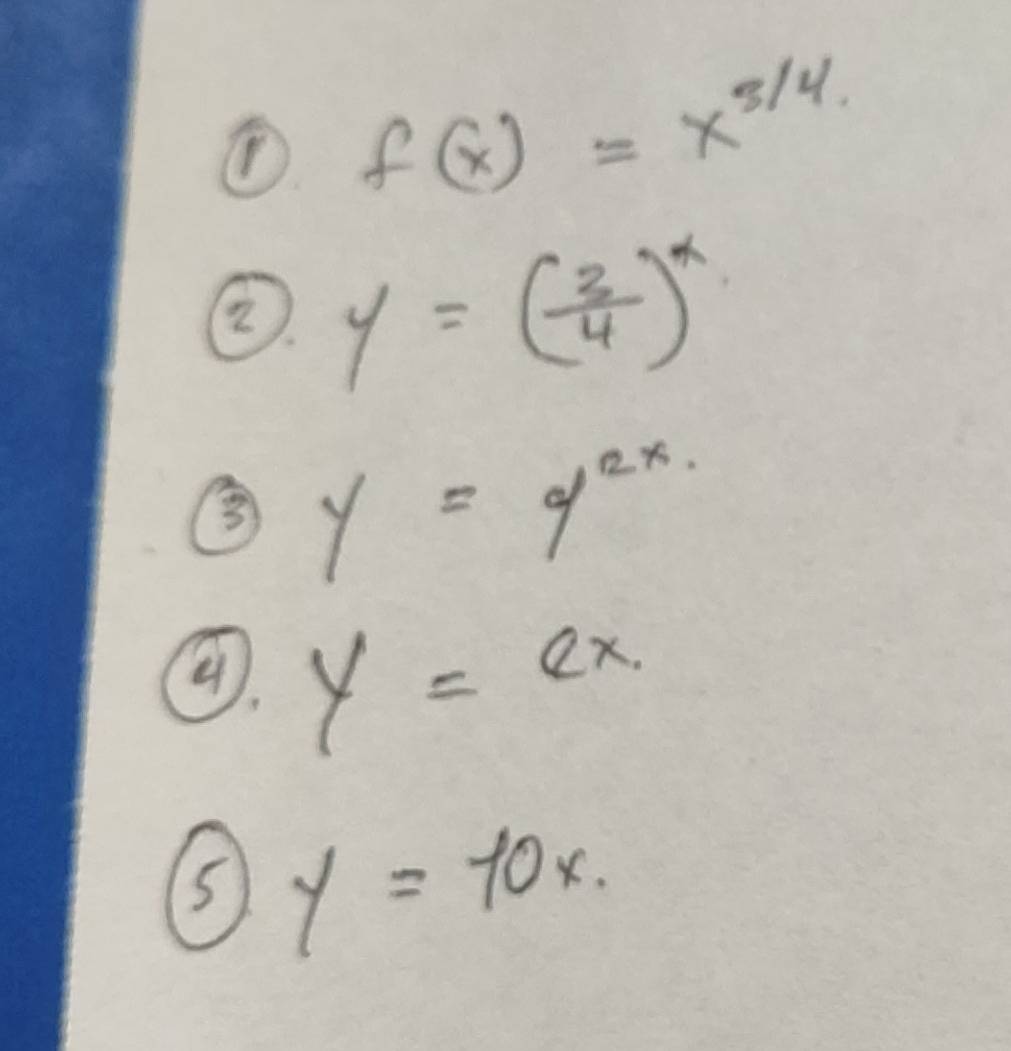 ①. f(x) = x^3/4.
②. y = (3/4)^x.
③ y = 9^2x.
④. y = ex.
⑤. y = 10x.